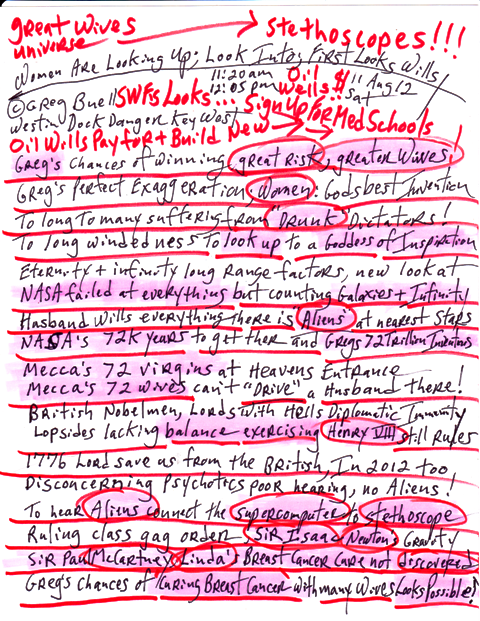 great wives → stethoscopes!!!
universe
Women Are Looking Up; Look Into; First Looks Wills
11:20am Oil 11 Aug 12
12:05 pm Wells!! $! Sat
© Greg Buell SWF's Looks... Sign Up For Med Schools
Westin Dock Danger Key West
Oil Wills Pay for + Build New →
Greg's Chances of Winning great Risk, greater Wives!
Greg's Perfect Exaggeration Women: Gods best Invention
To long To many suffering from "Drunk" Dictators!
To long windedness To look up to a Goddess of Inspiration
Eternity + infinity long Range factors, new look at
NASA failed at everything but counting Galaxies + Infinity
Husband Wills everything there is Aliens at nearest Stars
NASA's 72K years to get ther and Gregs 72 Trillion Inventors
Mecca's 72 virgins at Heavens Entrance
Mecca's 72 wives can't "Drive" a Husband there!
British Nobelmen, Lords with Hells Diplomatic Immunity
Lopsides lacking balance exercising Henry VIII still Rules
1776 Lord save us from the British, In 2012 too
Disconcerning Psychotics poor hearing, no Aliens!
To hear Aliens connect the supercomputer to stethoscope
Ruling class gag order, Sir Isaac Newton's Gravity
Sir Paul McCartney Linda's Breast Cancer Cure not discovered
Greg's Chances of Curing Breast Cancer with many Wives Looks Possible!